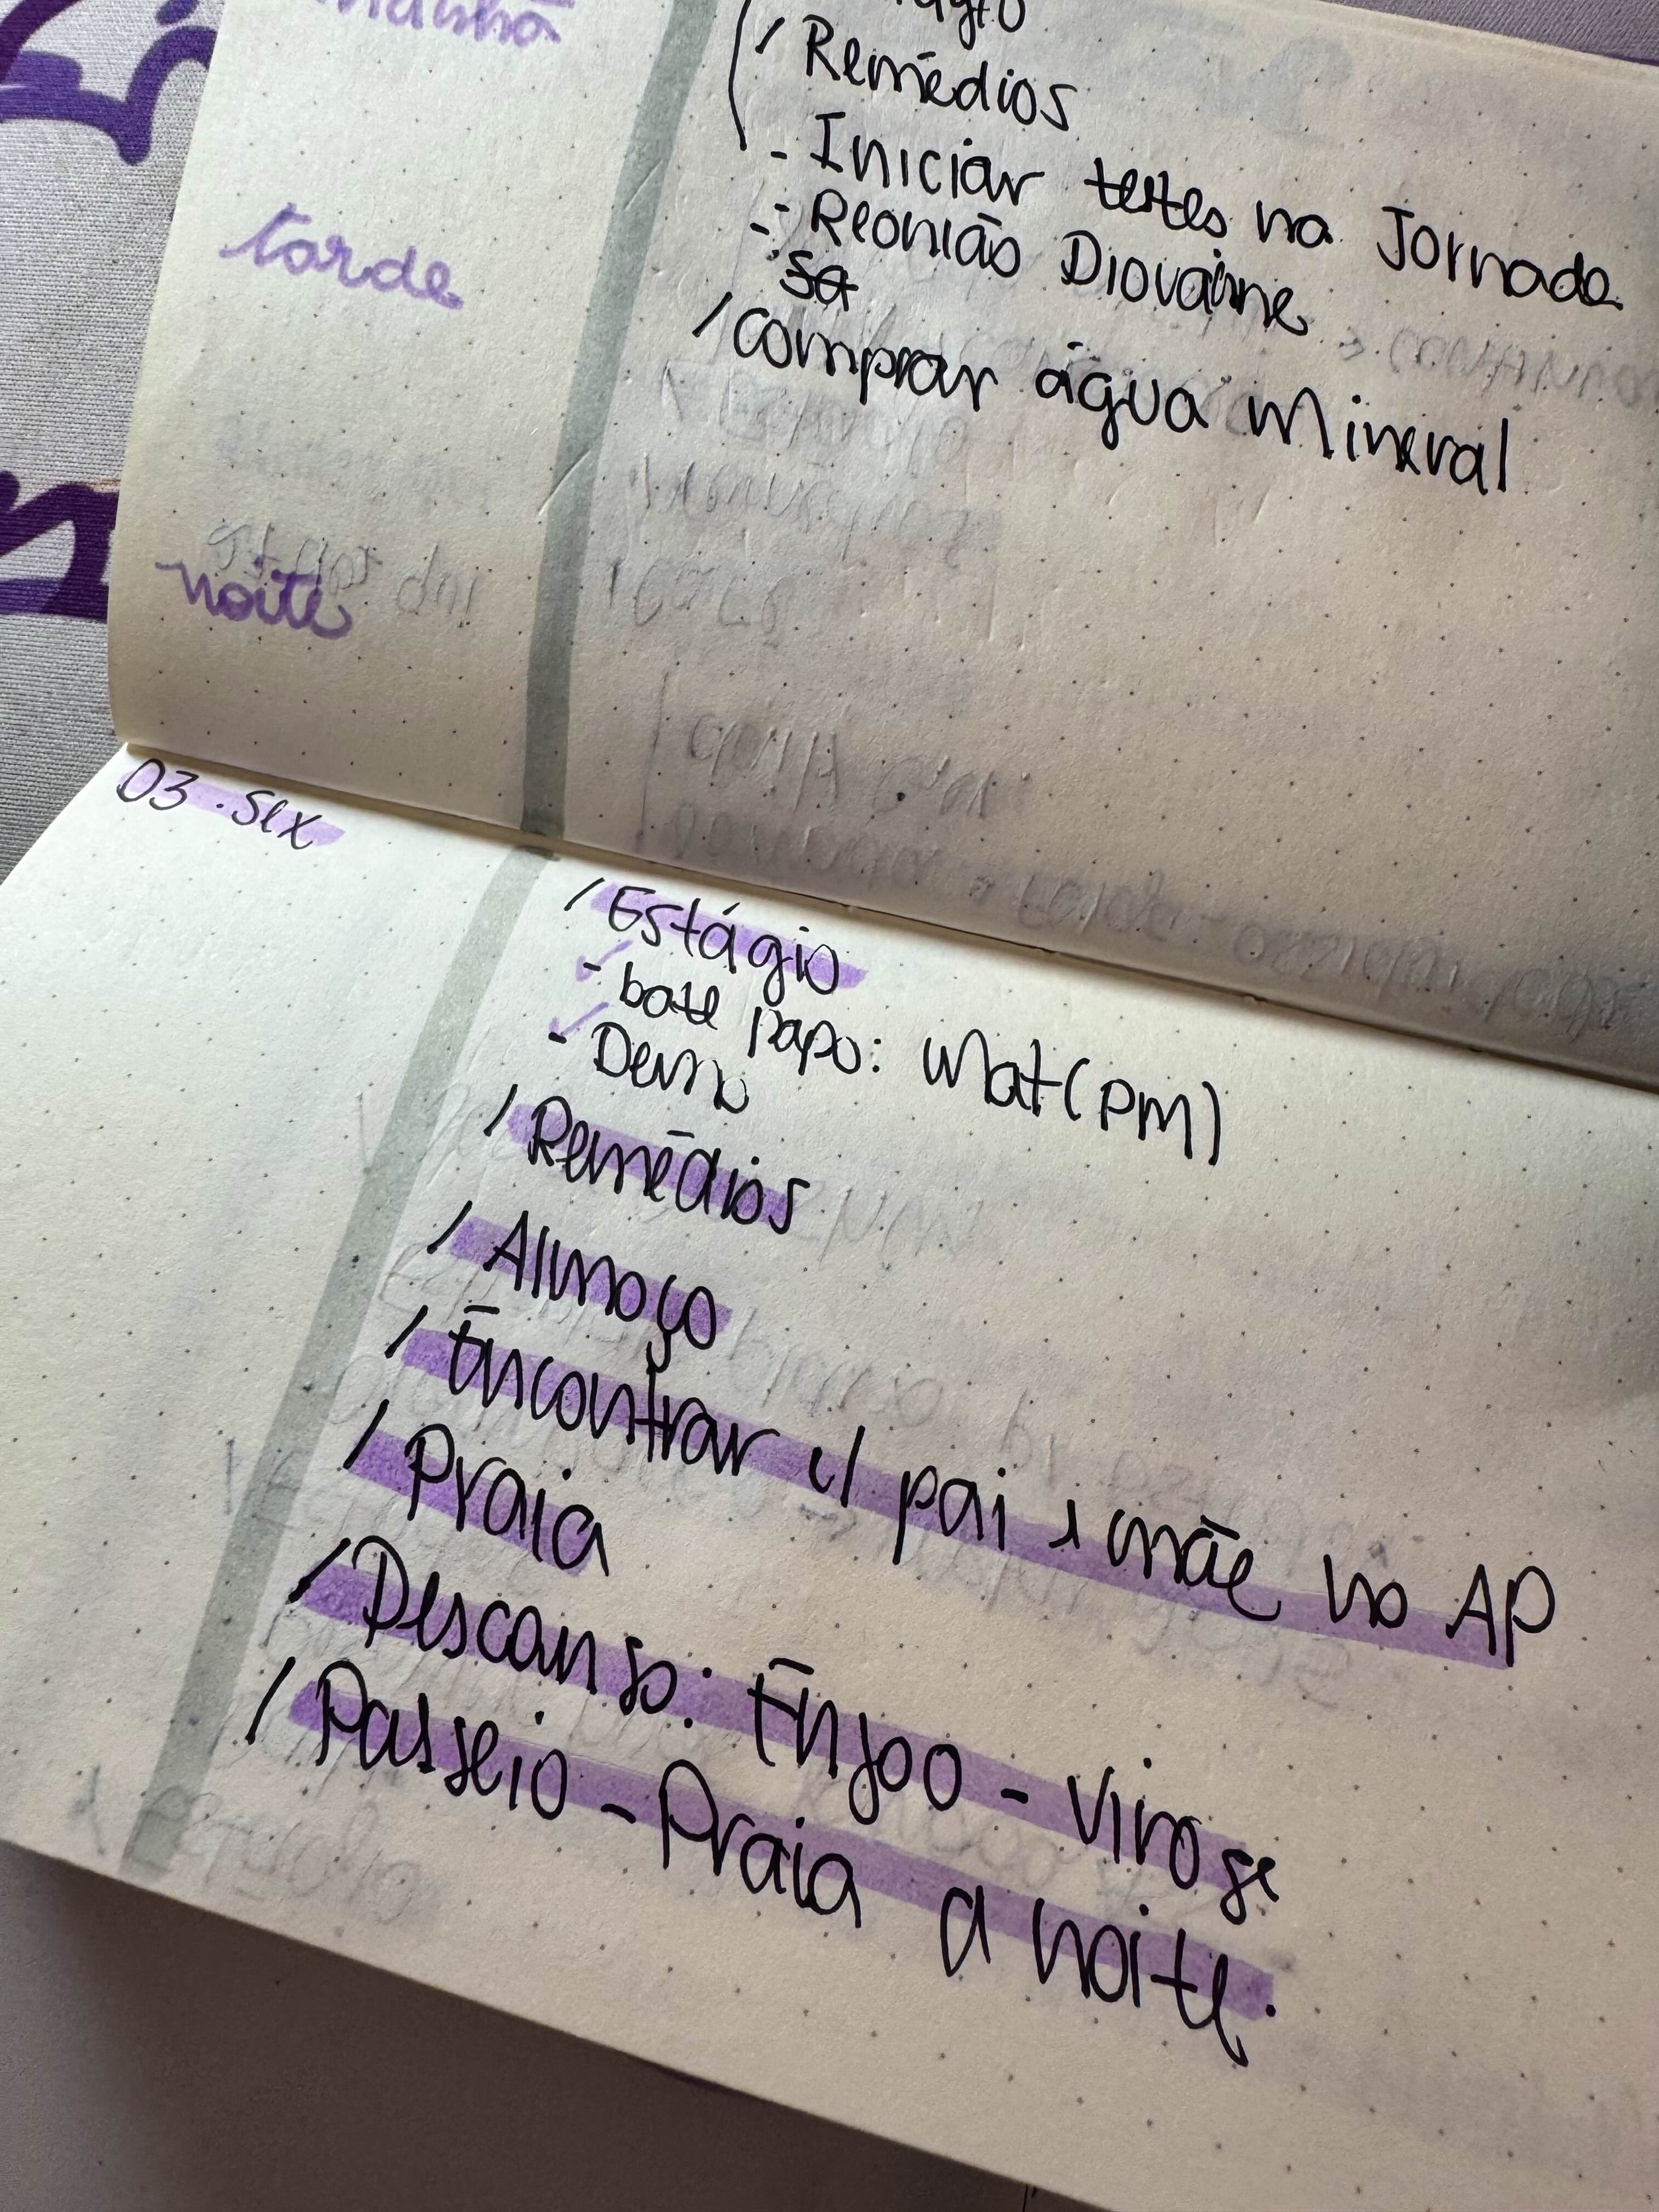 manhã
/ Remédios
- Iniciar testes na Jornada
- Reonião Diovanne
tarde
/ comprar água mineral
noite
03. sex
/ Estágio
- bate papo: Mat (PM)
- Demo
/ Remédios
/ Almoço
/ Encontrar c/ pai e mãe no AP
/ Praia
/ Descanso: Enjoo - Virose
/ Passeio - Praia a noite.